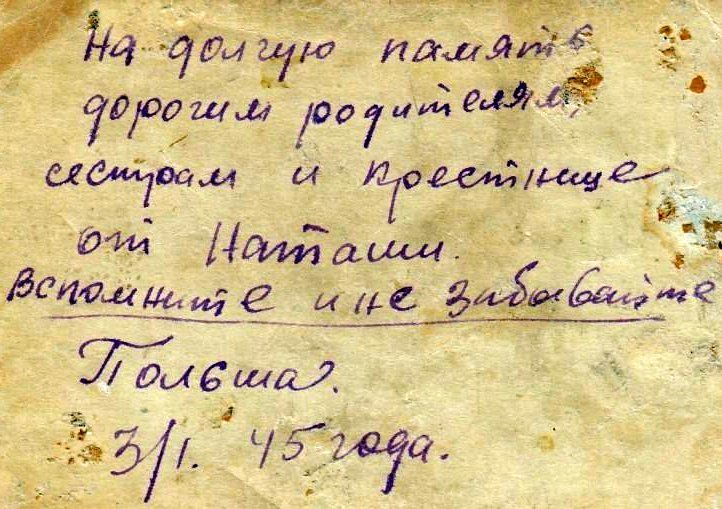 На долгую память
дорогим родителям,
сестрам и крестнице
от Наташи.
Вспомните и не забывайте
Польша.
3/I. 45 года.